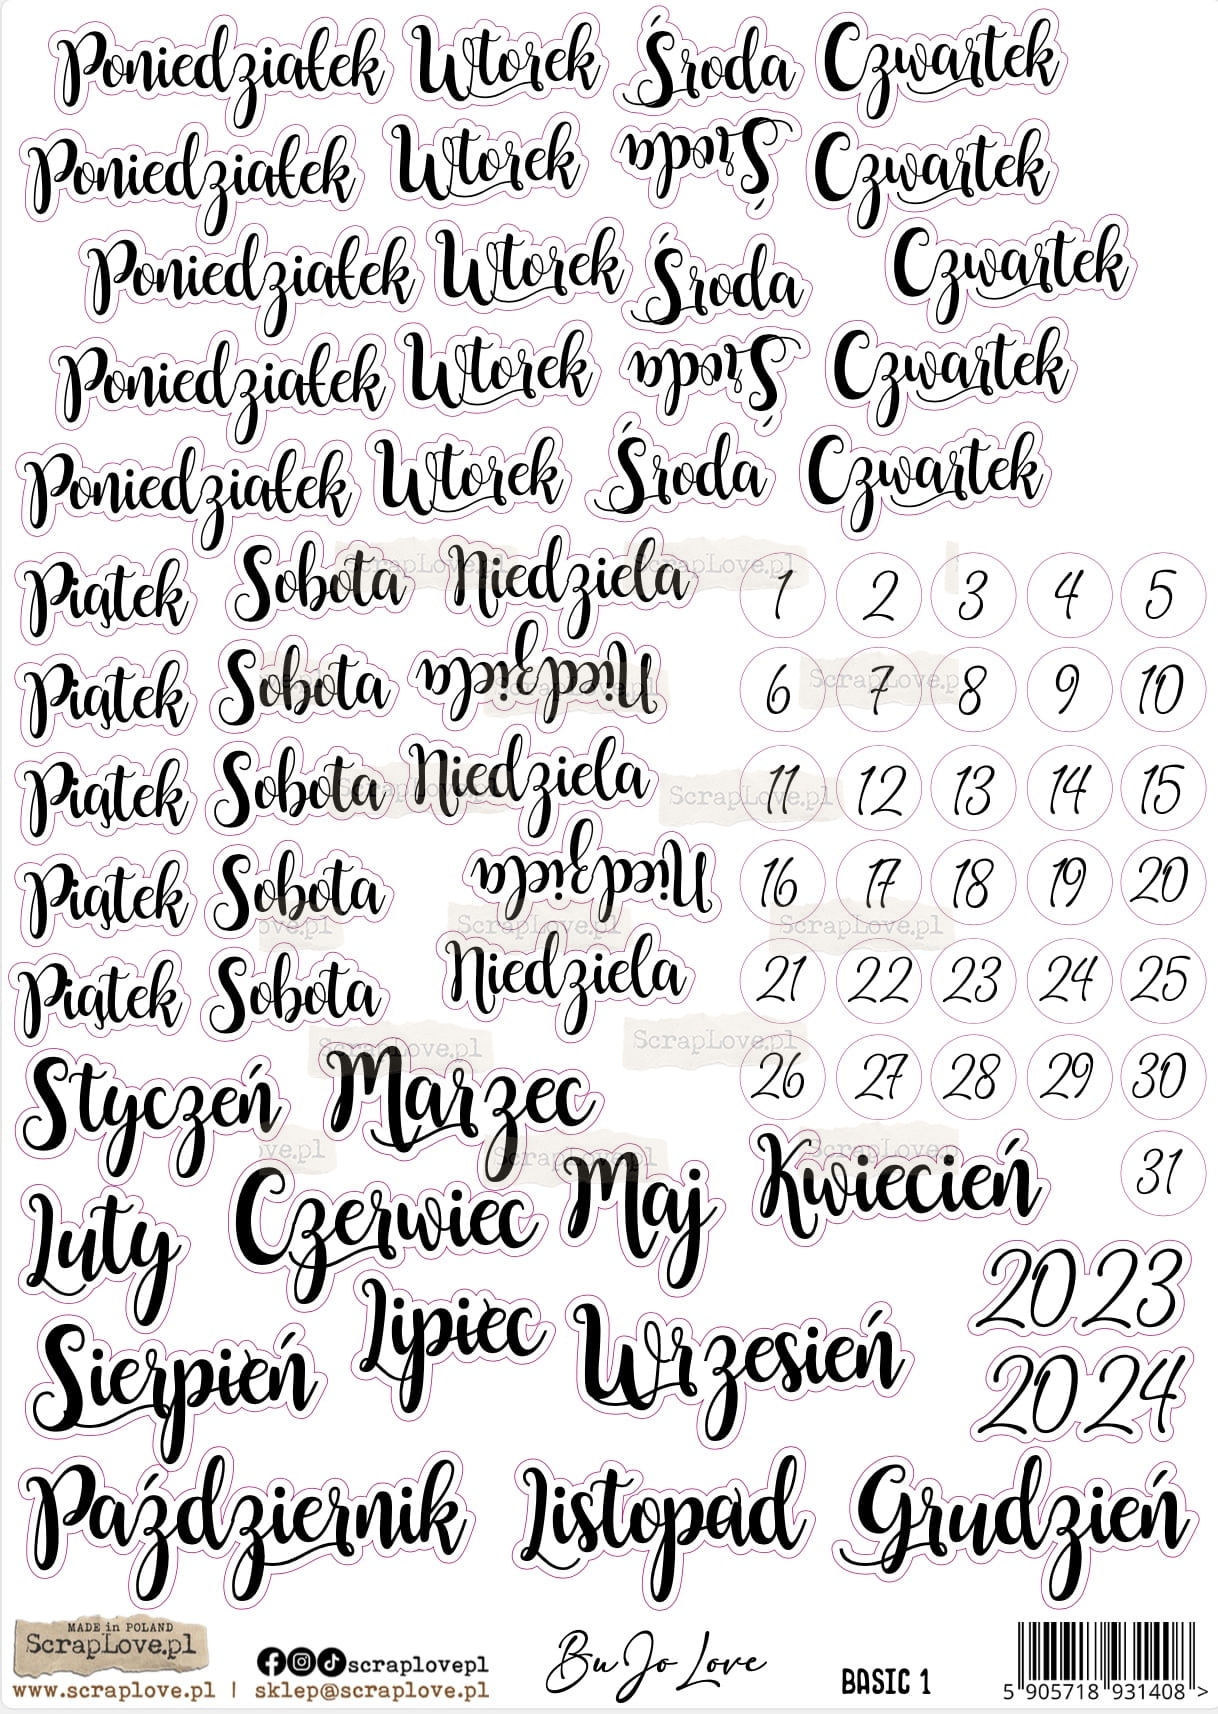 Poniedziałek Wtorek Środa Czwartek
Poniedziałek Wtorek Środa Czwartek
Poniedziałek Wtorek Środa Czwartek
Poniedziałek Wtorek Środa Czwartek
Poniedziałek Wtorek Środa Czwartek
Piątek Sobota Niedziela 1 2 3 4 5
Piątek Sobota Niedziela 6 7 8 9 10
Piątek Sobota Niedziela 11 12 13 14 15
Piątek Sobota Niedziela 16 17 18 19 20
Piątek Sobota Niedziela 21 22 23 24 25
Styczeń Marzec 26 27 28 29 30
Luty Czerwiec Maj Kwiecień 31
Sierpień Lipiec Wrzesień 2023
2024
Październik Listopad Grudzień
MADE in POLAND
ScrapLove.pl
www.scraplove.pl | sklep@scraplove.pl
scraplovepl
BuJo Love
BASIC 1
5 905718 931408 >